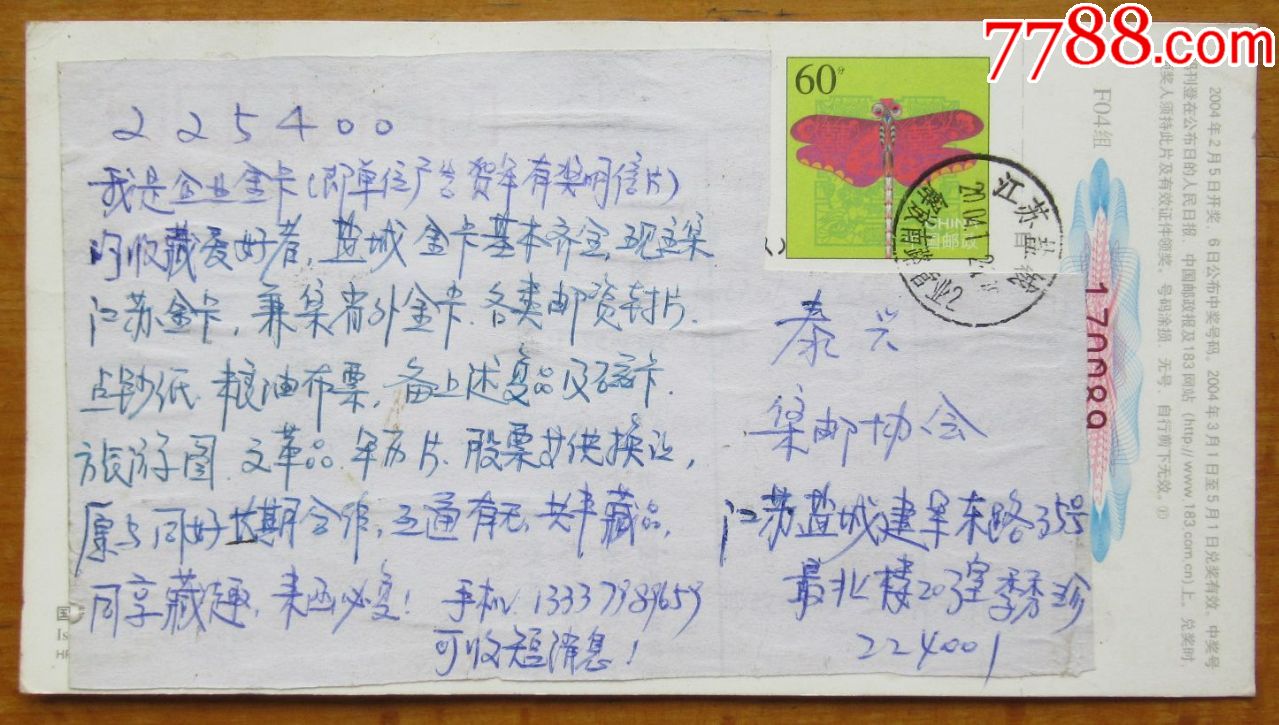 7788.com
60分
225400
我是企业金卡(即单位广告贺年有奖明信片)
的收藏爱好者，盐城金卡基本齐全，现主集
江苏金卡，兼集省外金卡.各类邮资封片.
点钞纸.粮油布票，备上述复品及磁卡.
旅游图.文革品.年历片.股票等供换让，
愿与同好长期合作，互通有无，共丰藏品，
同享藏趣，来函必复！手机
可收短消息！
泰兴
集邮协会
江苏盐城建军东路35号
最北楼203室李秀珍
224001
江苏盐城
F04组
170089
2004年2月5日开奖，6日公布中奖号码。2004年3月1日至5月1日兑奖有效。中奖号
期刊登在公布日的人民日报、中国邮政报及183网站(http://www.183.com.cn)上。兑奖时
领奖人须持此片及有效证件领奖。号码涂损、无号、自行剪下无效。
国